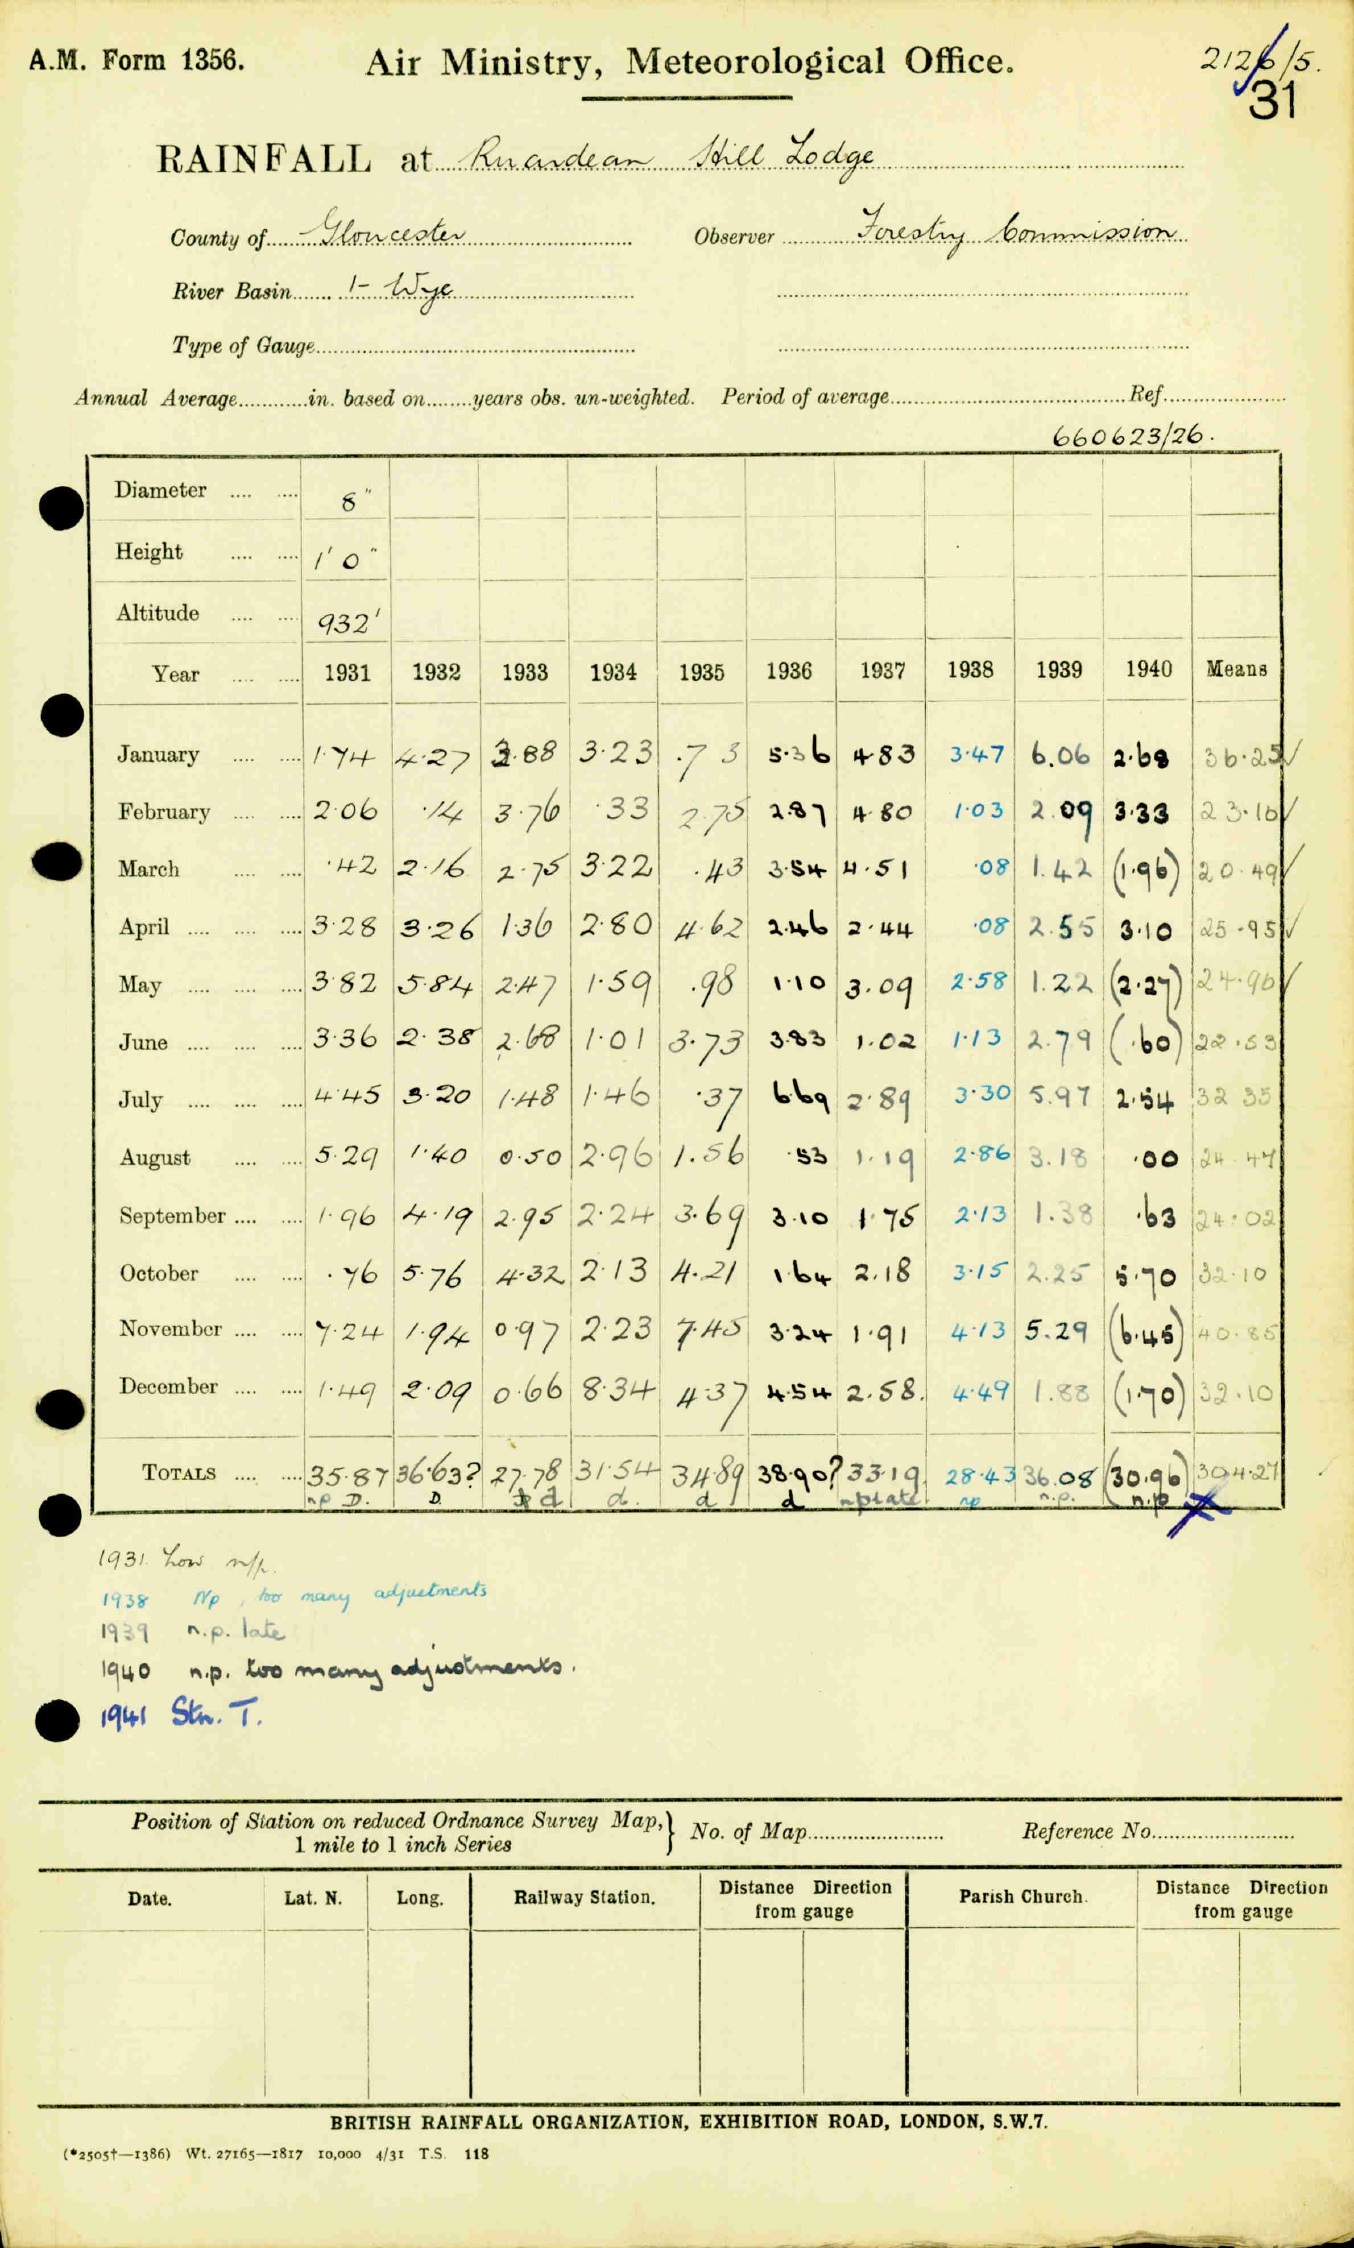 A.M. Form 1356. Air Ministry, Meteorological Office. 2126/5.
31
RAINFALL at Ruardean Hill Lodge
County of Gloucester Observer Forestry Commission
River Basin 1- Wye
Type of Gauge
Annual Average in. based on years obs. un-weighted. Period of average Ref.
660623/26.
Diameter 8"
Height 1' 0"
Altitude 932'
Year 1931 1932 1933 1934 1935 1936 1937 1938 1939 1940 Means
January 1.74 4.27 3.88 3.23 .73 5.36 4.83 3.47 6.06 2.68 36.25 ✓
February 2.06 .14 3.76 .33 2.75 2.87 4.80 1.03 2.09 3.33 23.16 ✓
March .42 2.16 2.75 3.22 .43 3.54 4.51 .08 1.42 (1.96) 20.49 ✓
April 3.28 3.26 1.36 2.80 4.62 2.46 2.44 .08 2.55 3.10 25.95 ✓
May 3.82 5.84 2.47 1.59 .98 1.10 3.09 2.58 1.22 (2.27) 24.96 ✓
June 3.36 2.38 2.68 1.01 3.73 3.83 1.02 1.13 2.79 (.60) 22.53
July 4.45 3.20 1.48 1.46 .37 6.69 2.89 3.30 5.97 2.54 32 35
August 5.29 1.40 0.50 2.96 1.56 .53 1.19 2.86 3.18 .00 24 47
September 1.96 4.19 2.95 2.24 3.69 3.10 1.75 2.13 1.38 .63 24.02
October .76 5.76 4.32 2.13 4.21 1.64 2.18 3.15 2.25 5.70 32.10
November 7.24 1.94 0.97 2.23 7.45 3.24 1.91 4.13 5.29 (6.45) 40.85
December 1.49 2.09 0.66 8.34 4.37 4.54 2.58. 4.49 1.88 (1.70) 32.10
TOTALS 35.87 36.63? 27.78 31.54 34.89 38.90? 33.19 28.43 36.08 (30.96) 304.27
np D. D. d d. d d np late np n.p. n.p
1931. Low n/p.
1938 Np, too many adjustments
1939 n.p. late
1940 n.p. too many adjustments.
1941 Stn. T.
Position of Station on reduced Ordnance Survey Map, No. of Map Reference No.
1 mile to 1 inch Series
Date. Lat. N. Long. Railway Station. Distance Direction from gauge Parish Church. Distance Direction from gauge
BRITISH RAINFALL ORGANIZATION, EXHIBITION ROAD, LONDON, S.W.7.
(*2505†—1386) Wt. 27165—1817 10,000 4/31 T.S. 118